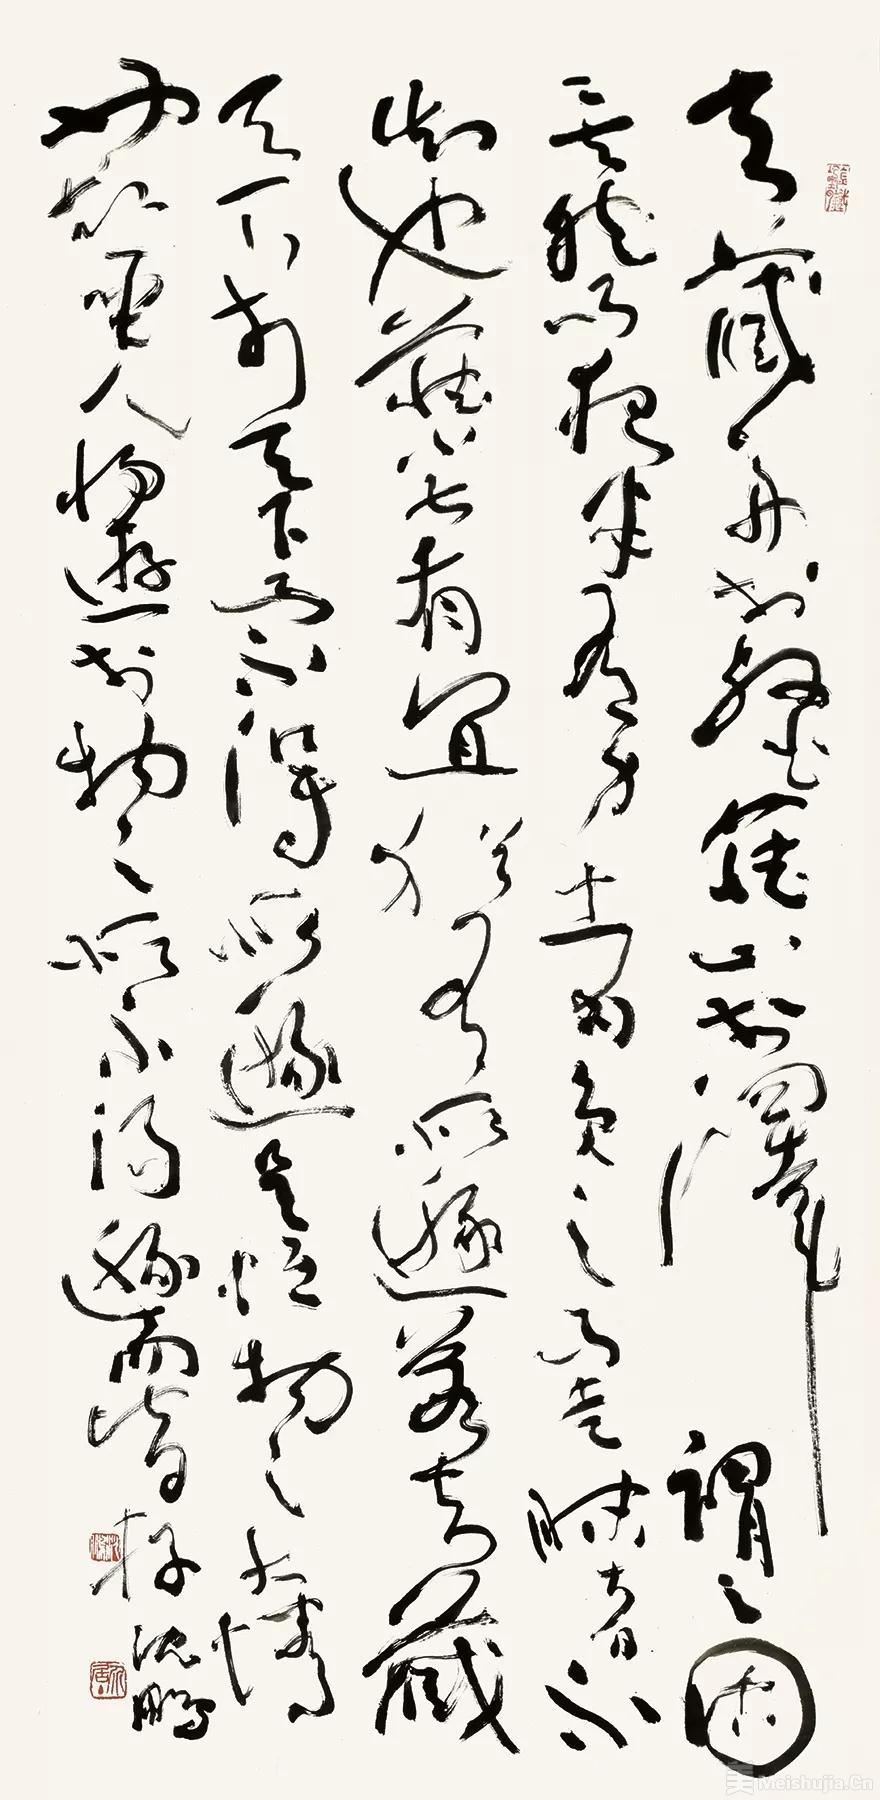 夫藏舟於壑藏山於澤謂之固
矣然而夜半有力者負之而走昧者不
知也藏小大有宜猶有所遯若夫藏
天下於天下而不得所遯是恆物之大情
也故聖人將遊於物之所不得遯而皆存
沈鹏
Meishujia.Cn